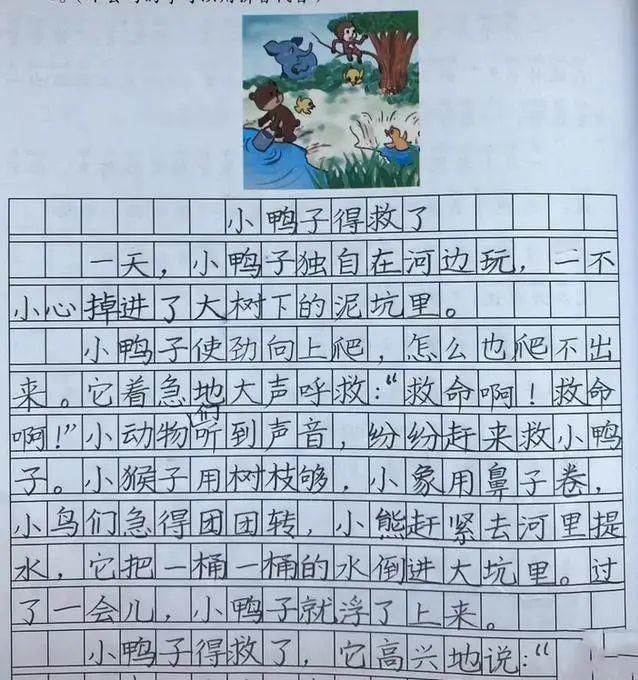 小鸭子得救了
一天，小鸭子独自在河边玩，一不
小心掉进了大树下的泥坑里。
小鸭子使劲向上爬，怎么也爬不出
来。它着急地大声呼救：“救命啊！救命
啊！”小动物们听到声音，纷纷赶来救小鸭
子。小猴子用树枝够，小象用鼻子卷，
小鸟们急得团团转，小熊赶紧去河里提
水，它把一桶一桶的水倒进大坑里。过
了一会儿，小鸭子就浮了上来。
小鸭子得救了，它高兴地说：“